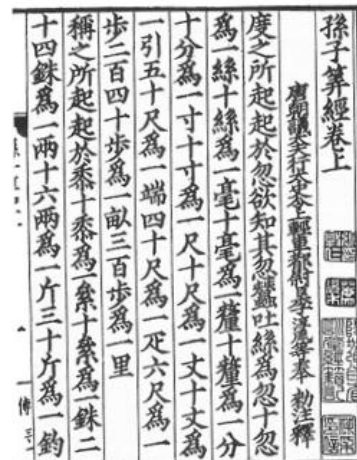 孫子算經卷上
唐朝議大夫行太史令上輕車都尉臣李淳風等奉 勑注釋
度之所起起於忽欲知其忽蠶吐絲爲忽十忽
爲一絲十絲爲一毫十毫爲一釐十釐爲一分
十分爲一寸十寸爲一尺十尺爲一丈十丈爲
一引五十尺爲一端四十尺爲一疋六尺爲一
歩二百四十歩爲一畝三百歩爲一里
稱之所起起於黍十黍爲一絫十絫爲一銖二
十四銖爲一兩十六兩爲一斤三十斤爲一鈞